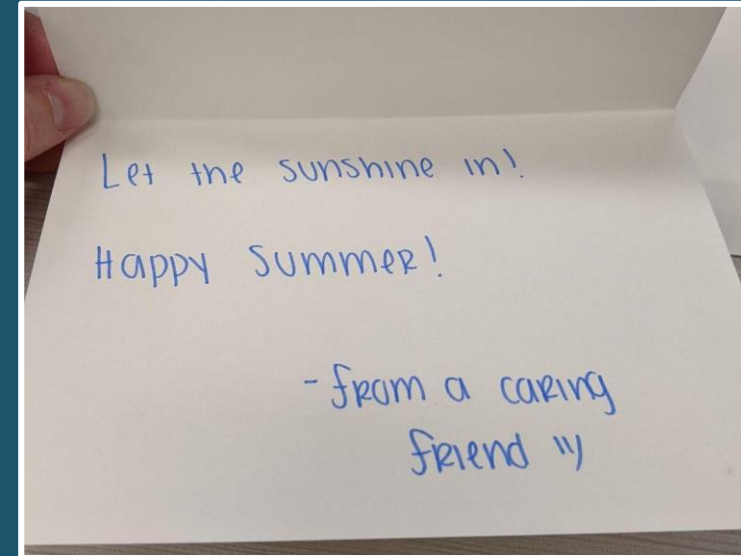 Let the sunshine in!
Happy Summer!
- from a caring
friend :)